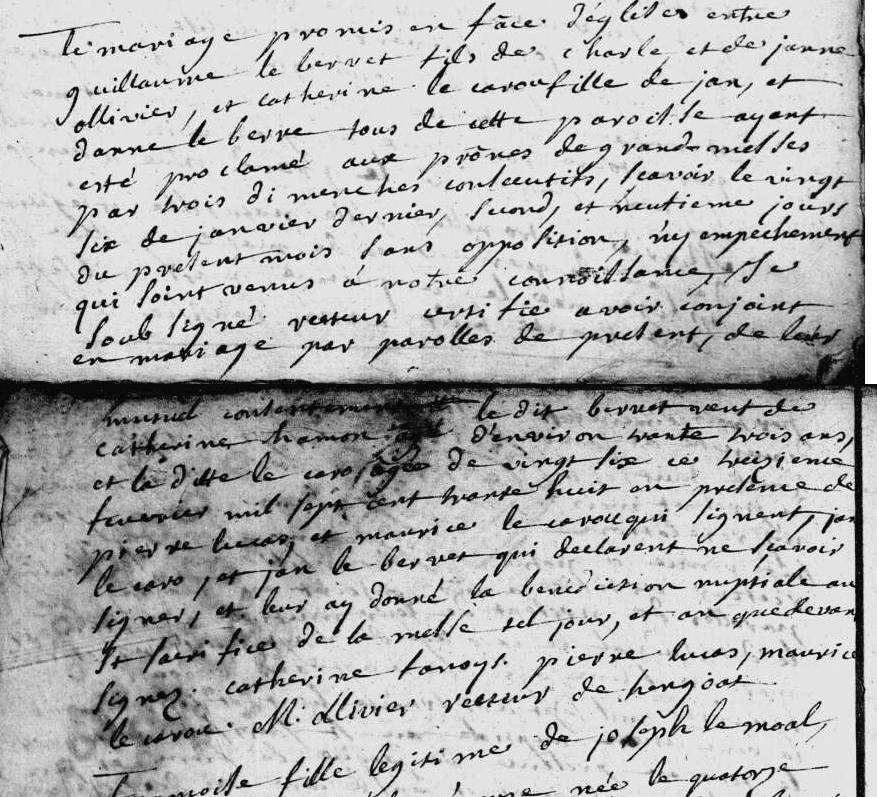 Le mariage promis en face d'église entre
guillaume le berret fils de charle et de janne
ollivier, et catherine le carou fille de jan, et
d'anne le berre tous de cette paroisse ayant
esté proclamé aux prônes de grand messes
par trois dimenches consecutifs, scavoir le vingt
six de janvier dernier, second, et neufieme jours
du present mois sans opposition, ny empechement
qui soint venus à notre connoissance, Je
soub signé recteur certifie avoir conjoint
en mariage par parolles de present, de leur
mutuel contentement le dit berret veuf de
catherine hamon agé d'environ trante trois ans,
et la ditte le caro agée de vingt six ce treisieme
fevrier mil sept cent trante huit en presence de
pierre lucas, et maurice le carou qui signent, jan
le caro, et jan le berret qui declarent ne scavoir
signer, et leur ay donné la benediction nuptiale au
St sacrifice de la messe tel jour, et an que devant
signez. catherine pierre lucas, maurice
le carou. M. ollivier recteur de hengoat
fille legitime de joseph le moal,
née le quatorze